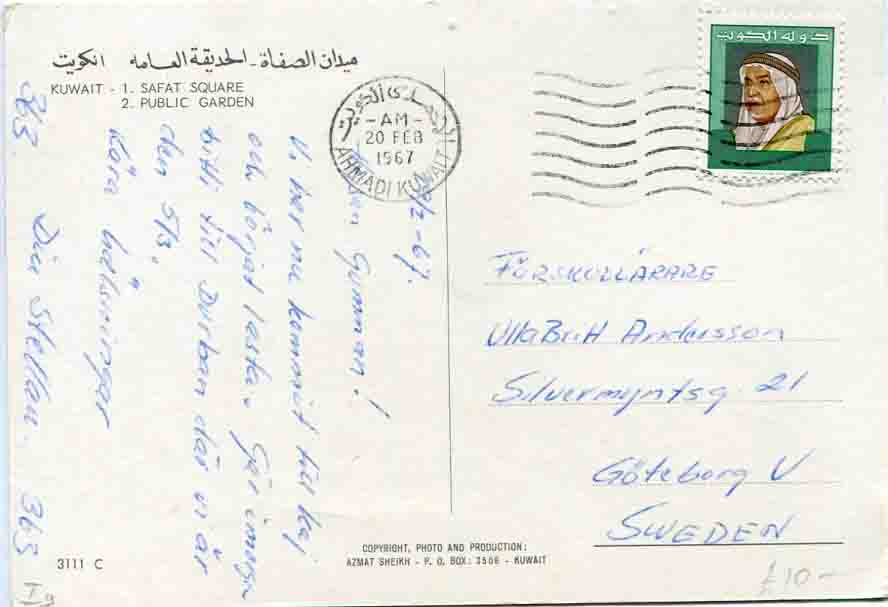 ميدان الصفاة - الحديقة العامه الكويت
KUWAIT - 1. SAFAT SQUARE
2. PUBLIC GARDEN
دولة الكويت
الأحمدى الكويت
- AM -
20 FEB
1967
AHMADI KUWAIT
/2-67.
Gumman!
Vi har nu kommit till kaj
och börjat lasta. Går imorgon
bitti till Durban där vi är
den 5/3.
Kära hälsningar
Din Stellan.
363
363
FÖRSKOLLÄRARE
UllaBritt Andersson
Silvermyntsg 21
Göteborg V
SWEDEN
COPYRIGHT, PHOTO AND PRODUCTION:
AZMAT SHEIKH - P. O. BOX: 3506 - KUWAIT
3111 C
£10-